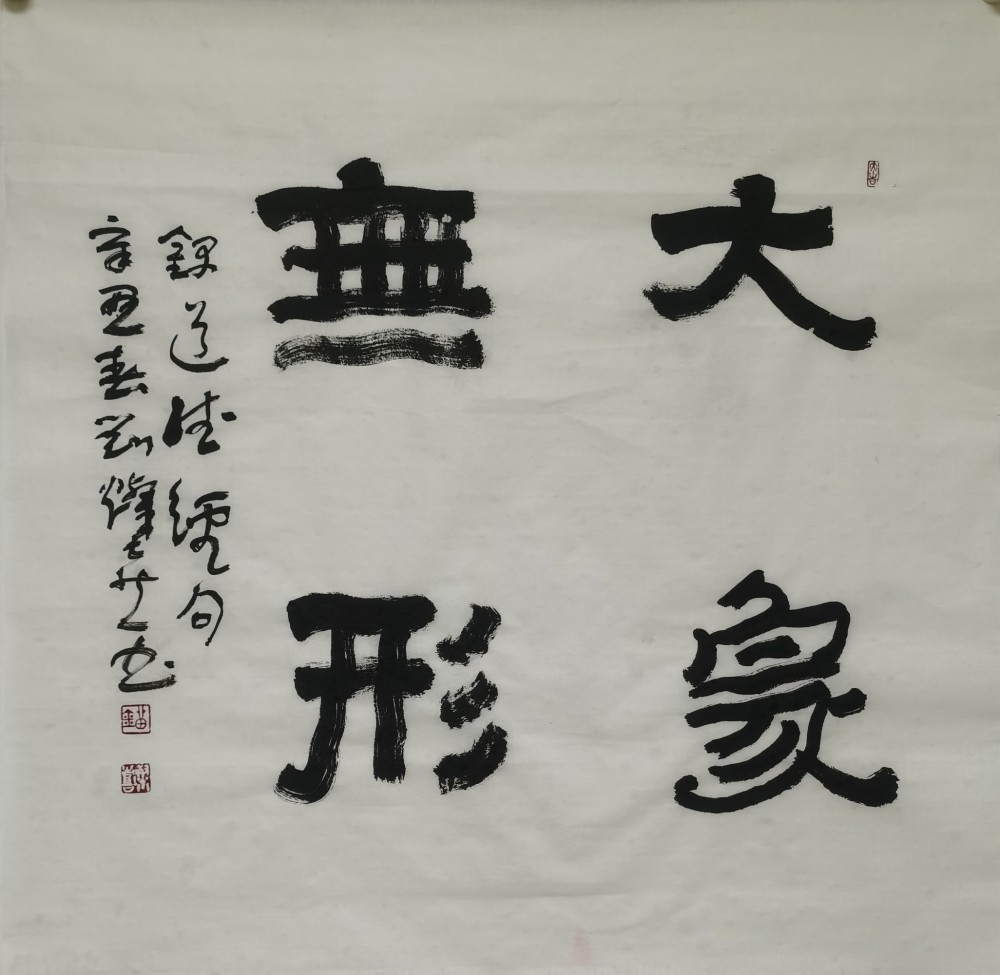 大象
無形
錄道德經句
辛丑春劉燦芝书